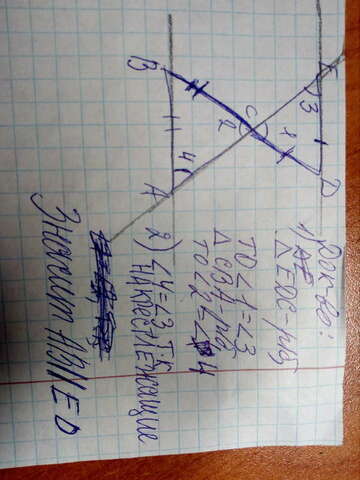 Док-во:
1) △EDC - р/б
то ∠1=∠3
△CBA - р/б
то ∠2=∠4
2) ∠4=∠3 т.к.
накрест лежащие
Значит AB||ED
B
A
C
D
E
1
2
3
4